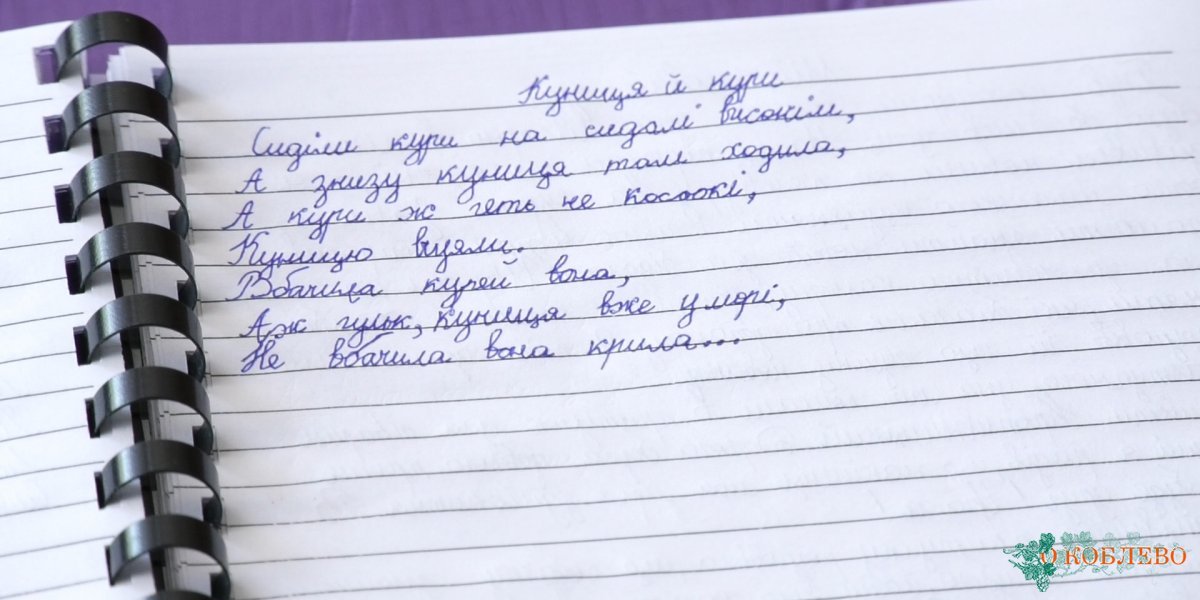 Куниця й кури
Сиділи кури на сидалі високім,
А знизу куниця там ходила,
А кури ж геть не косоокі,
Куницю вцяли.
Вбачила курей вона,
Аж гульк, куниця вже умрі,
Не вбачила вона крила...
О КОБЛЕВО